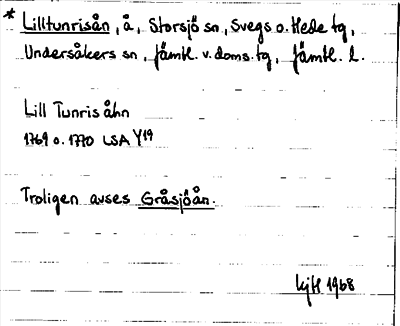 * Lilltunrisån, å, Storsjö sn, Svegs o. Hede tg,
Undersåkers sn, Jämtl. v. doms. tg, Jämtl. l.
Lill Tunris åhn
1769 o. 1770 LSA Y19
Troligen avses Gråsjöån.
1968